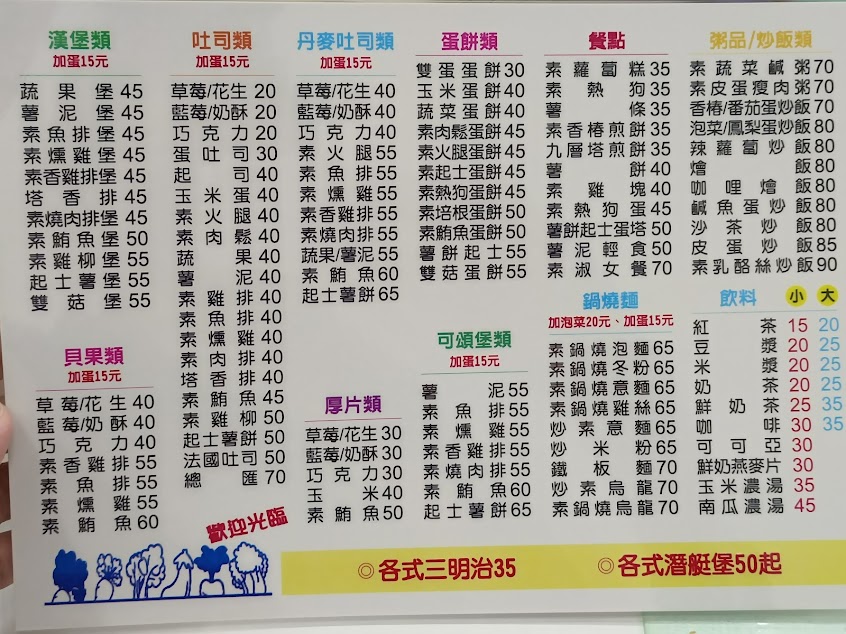 漢堡類
加蛋15元
蔬果堡45
薯泥堡45
素魚排堡45
素燻雞堡45
素香雞排堡45
塔香排45
素燒肉排堡45
素鮪魚堡50
素雞柳堡55
起士薯堡55
雙菇堡55
貝果類
加蛋15元
草莓/花生40
藍莓/奶酥40
巧克力40
素香雞排55
素魚排55
素燻雞55
素鮪魚60
吐司類
加蛋15元
草莓/花生20
藍莓/奶酥20
巧克力20
蛋吐司30
起司40
玉米蛋40
素火腿40
素肉鬆40
蔬果40
薯泥40
素雞排40
素魚排40
素燻雞40
素肉排40
塔香排40
素鮪魚45
素雞柳50
起士薯餅50
法國吐司50
總匯70
歡迎光臨
丹麥吐司類
加蛋15元
草莓/花生40
藍莓/奶酥40
巧克力40
素火腿55
素魚排55
素燻雞55
素香雞排55
素燒肉排55
蔬果/薯泥55
素鮪魚60
起士薯餅65
厚片類
草莓/花生30
藍莓/奶酥30
巧克力30
玉米40
素鮪魚50
蛋餅類
雙蛋蛋餅30
玉米蛋餅40
蔬菜蛋餅40
素肉鬆蛋餅45
素火腿蛋餅45
素起士蛋餅45
素熱狗蛋餅45
素培根蛋餅50
素鮪魚蛋餅50
薯餅起士55
雙菇蛋餅55
可頌堡類
加蛋15元
薯泥55
素魚排55
素燻雞55
素香雞排55
素燒肉排55
素鮪魚60
起士薯餅65
餐點
素蘿蔔糕35
素熱狗35
薯條35
素香椿煎餅35
九層塔煎餅35
薯餅40
素雞塊40
素熱狗蛋45
薯餅起士蛋塔50
薯泥輕食50
素淑女餐70
鍋燒麵
加泡菜20元、加蛋15元
素鍋燒泡麵65
素鍋燒冬粉65
素鍋燒意麵65
素鍋燒雞絲65
炒素意麵65
炒米粉65
鐵板麵70
炒素烏龍70
素鍋燒烏龍70
粥品/炒飯類
素蔬菜鹹粥70
素皮蛋瘦肉粥70
香椿/番茄蛋炒飯70
泡菜/鳳梨蛋炒飯80
辣蘿蔔炒飯80
燴飯80
咖哩燴飯80
鹹魚蛋炒飯80
沙茶炒飯80
皮蛋炒飯85
素乳酪絲炒飯90
飲料 小 大
紅茶15 20
豆漿20 25
米漿20 25
奶茶20 25
鮮奶茶25 35
咖啡30 35
可可亞30
鮮奶燕麥片30
玉米濃湯35
南瓜濃湯45
◎各式三明治35
◎各式潛艇堡50起